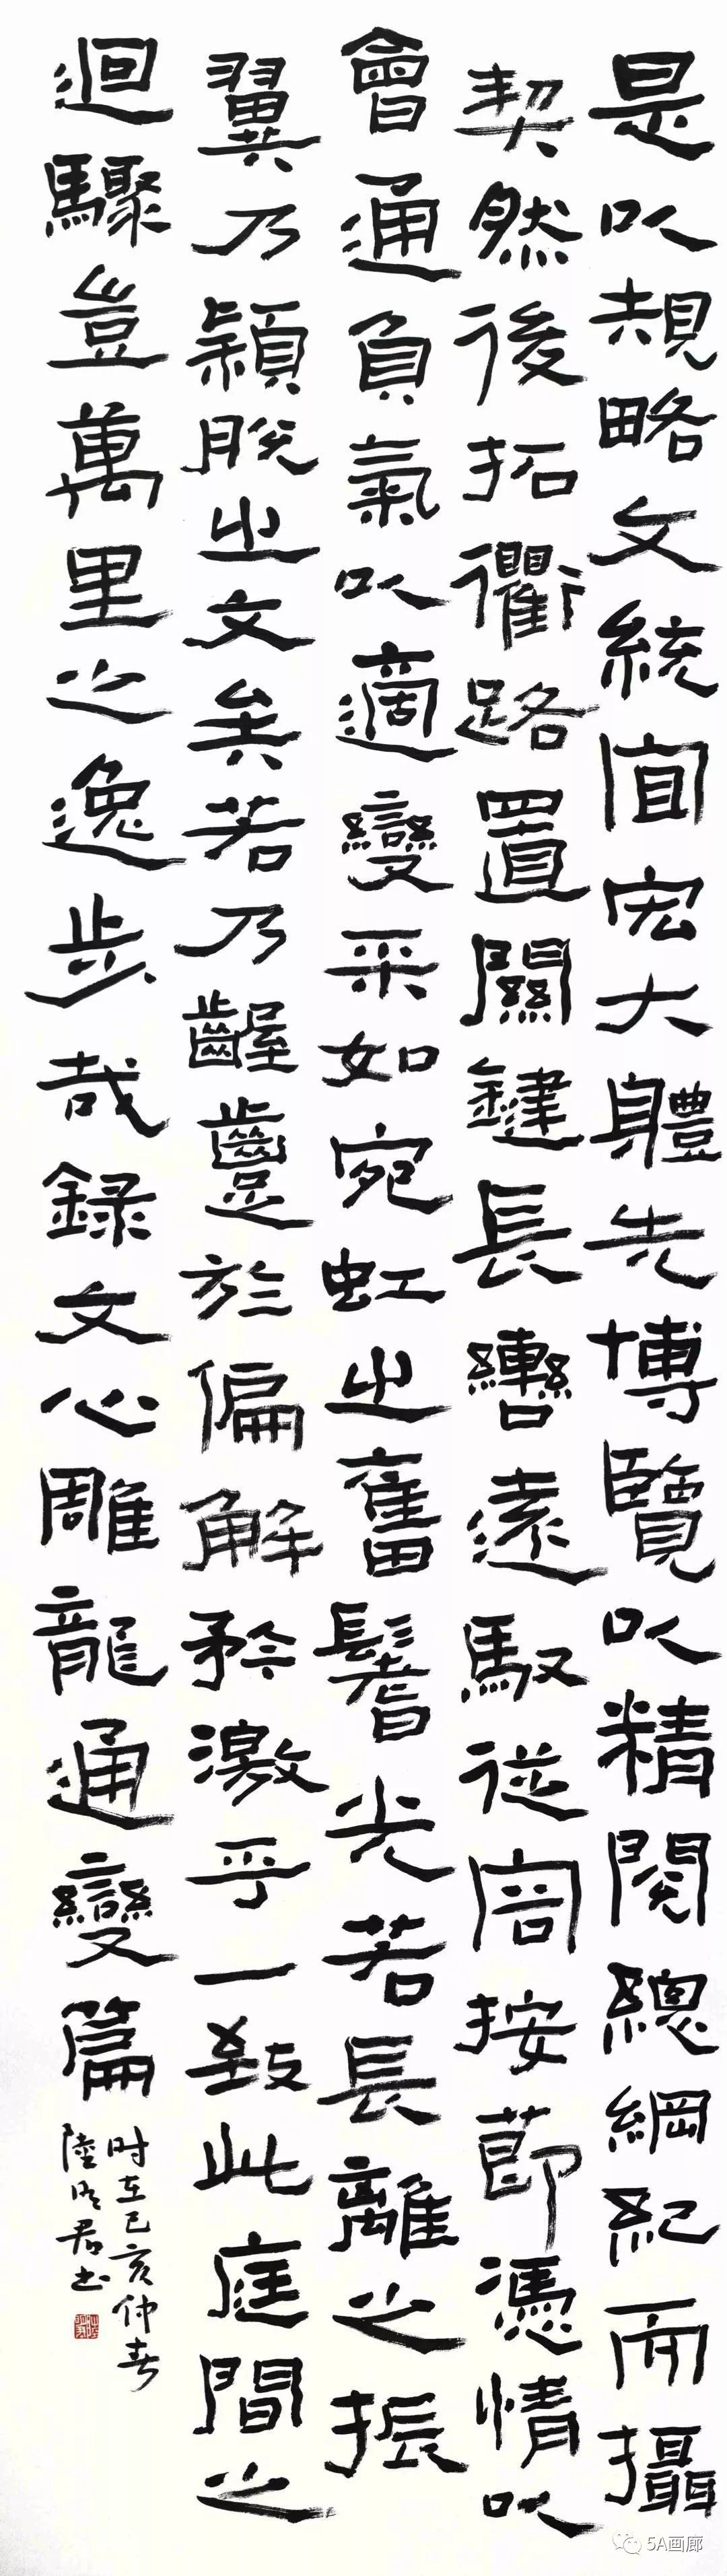 是以規略文統宜宏大體先博覽以精閱總綱紀而攝
契然後拓衢路置關鍵長轡遠馭從容按節憑情以
會通負氣以適變采如宛虹之奮鬐光若長離之振
翼乃穎脫之文矣若乃齷齪於偏解矜激乎一致此庭間之
迴驟豈萬里之逸步哉錄文心雕龍通變篇
时在己亥仲春
陸明君书
5A画廊